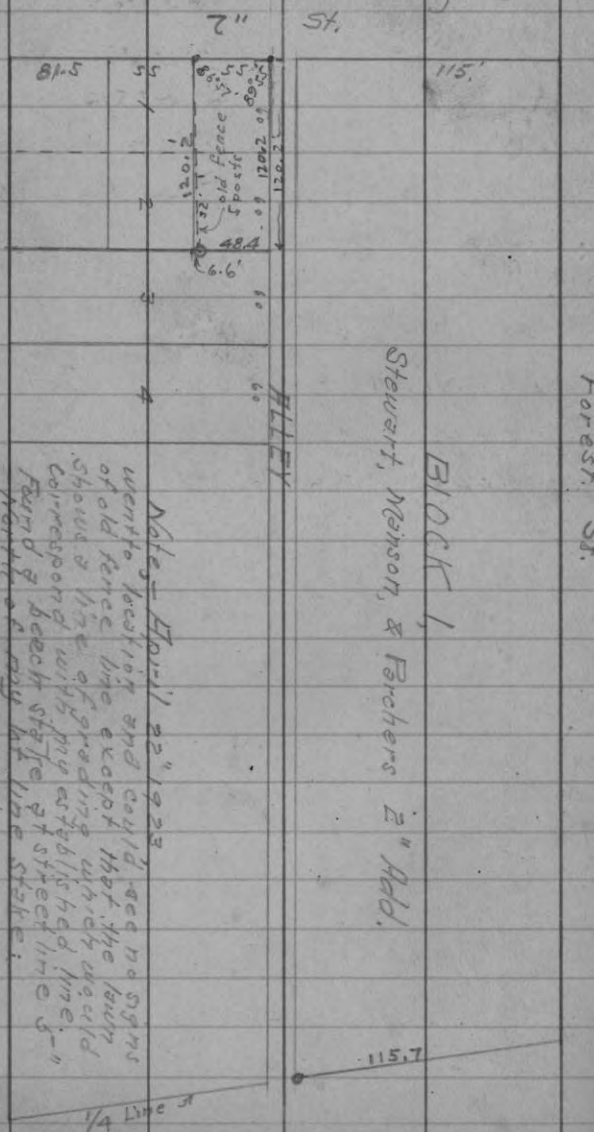 2" St.
81.5
55
55
55
115.'
86°57'
89°55'
1
60
120.2
120.2
120.2
old fence
5 posts
2
60
48.4
6.6'
3
60
4
60
ALLEY
Forest St.
BLOCK 1,
Stewart, Manson, & Parchers 2" Add.
Note - April 22" 1923
went to location and could see no signs
of old fence line except that the lawn
shows a line of grading which would
correspond with my established line.
Found a beech stake at street line 5"
North of my lot line stake.
115.7
1/4 Line